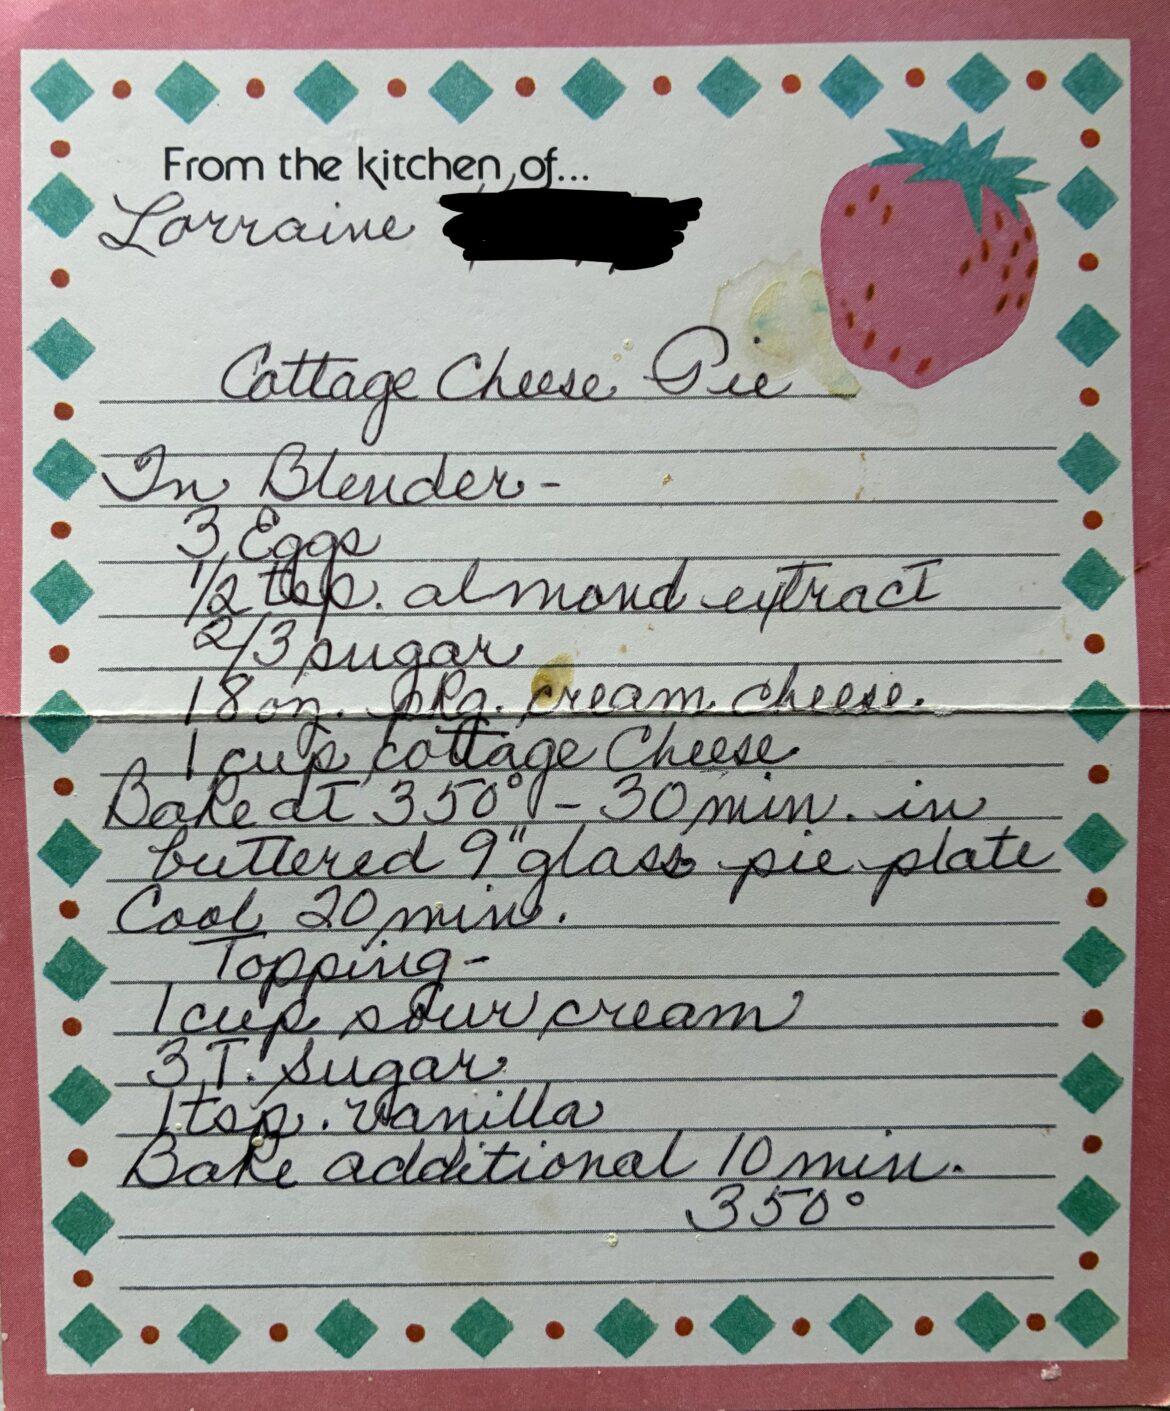 From the kitchen of...
Lorraine
Cottage Cheese Pie
In Blender-
3 Eggs
1/2 tsp. almond extract
2/3 sugar
1 8 oz. pkg. cream cheese.
1 cup cottage Cheese
Bake at 350° - 30 min. in
buttered 9" glass pie plate
Cool 20 min.
Topping-
1 cup sour cream
3 T. Sugar
1 tsp. vanilla
Bake additional 10 min.
350°